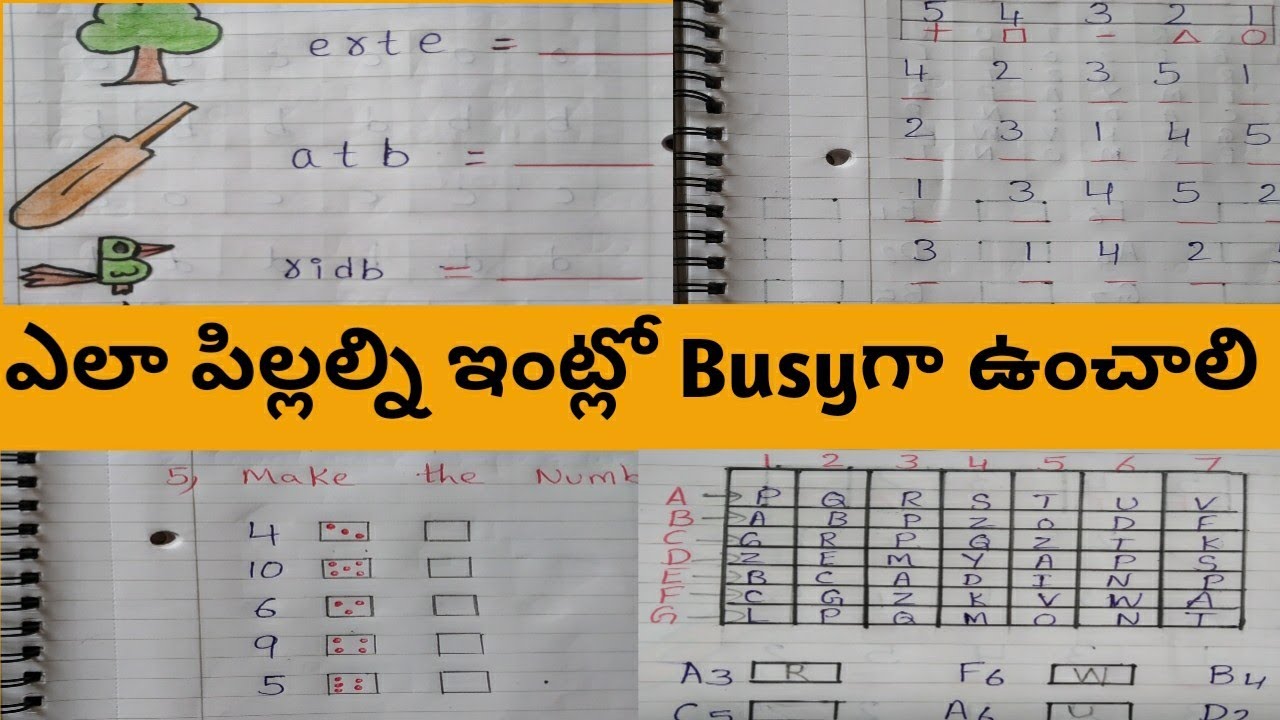 erte =
atb =
ridb =
5 4 3 2 1
+ □ − △ ○
4 2 3 5 1
2 3 1 4 5
1 3 4 5 2
3 1 4 2
ఎలా పిల్లల్ని ఇంట్లో Busyగా ఉంచాలి
5, Make the Numb
4
10
6
9
5
1. 2. 3. 4 5 6 7
A P Q R S T U V
B A B P Z O D F
C G R P Q Z T K
D Z E M Y A P S
E B C A D I N P
F C G Z K V W A
G L P Q M O N T
A3 R F6 W B4
C5 A6 U D2